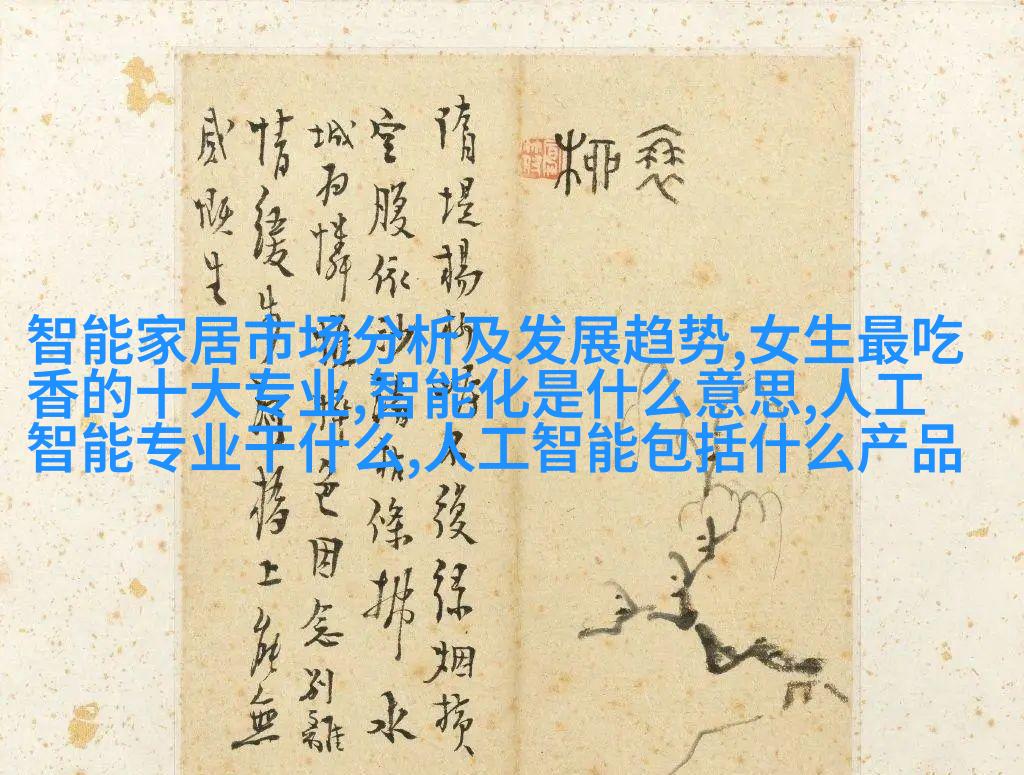 衰柳
隋堤楊柳不復綠烟横
空腹依沙渚枯條拂水
城為憐憔悴色因念別離
情緩步橋上能無
感慨生
智能家居市场分析及发展趋势,女生最吃
香的十大专业,智能化是什么意思,人工
智能专业干什么,人工智能包括什么产品